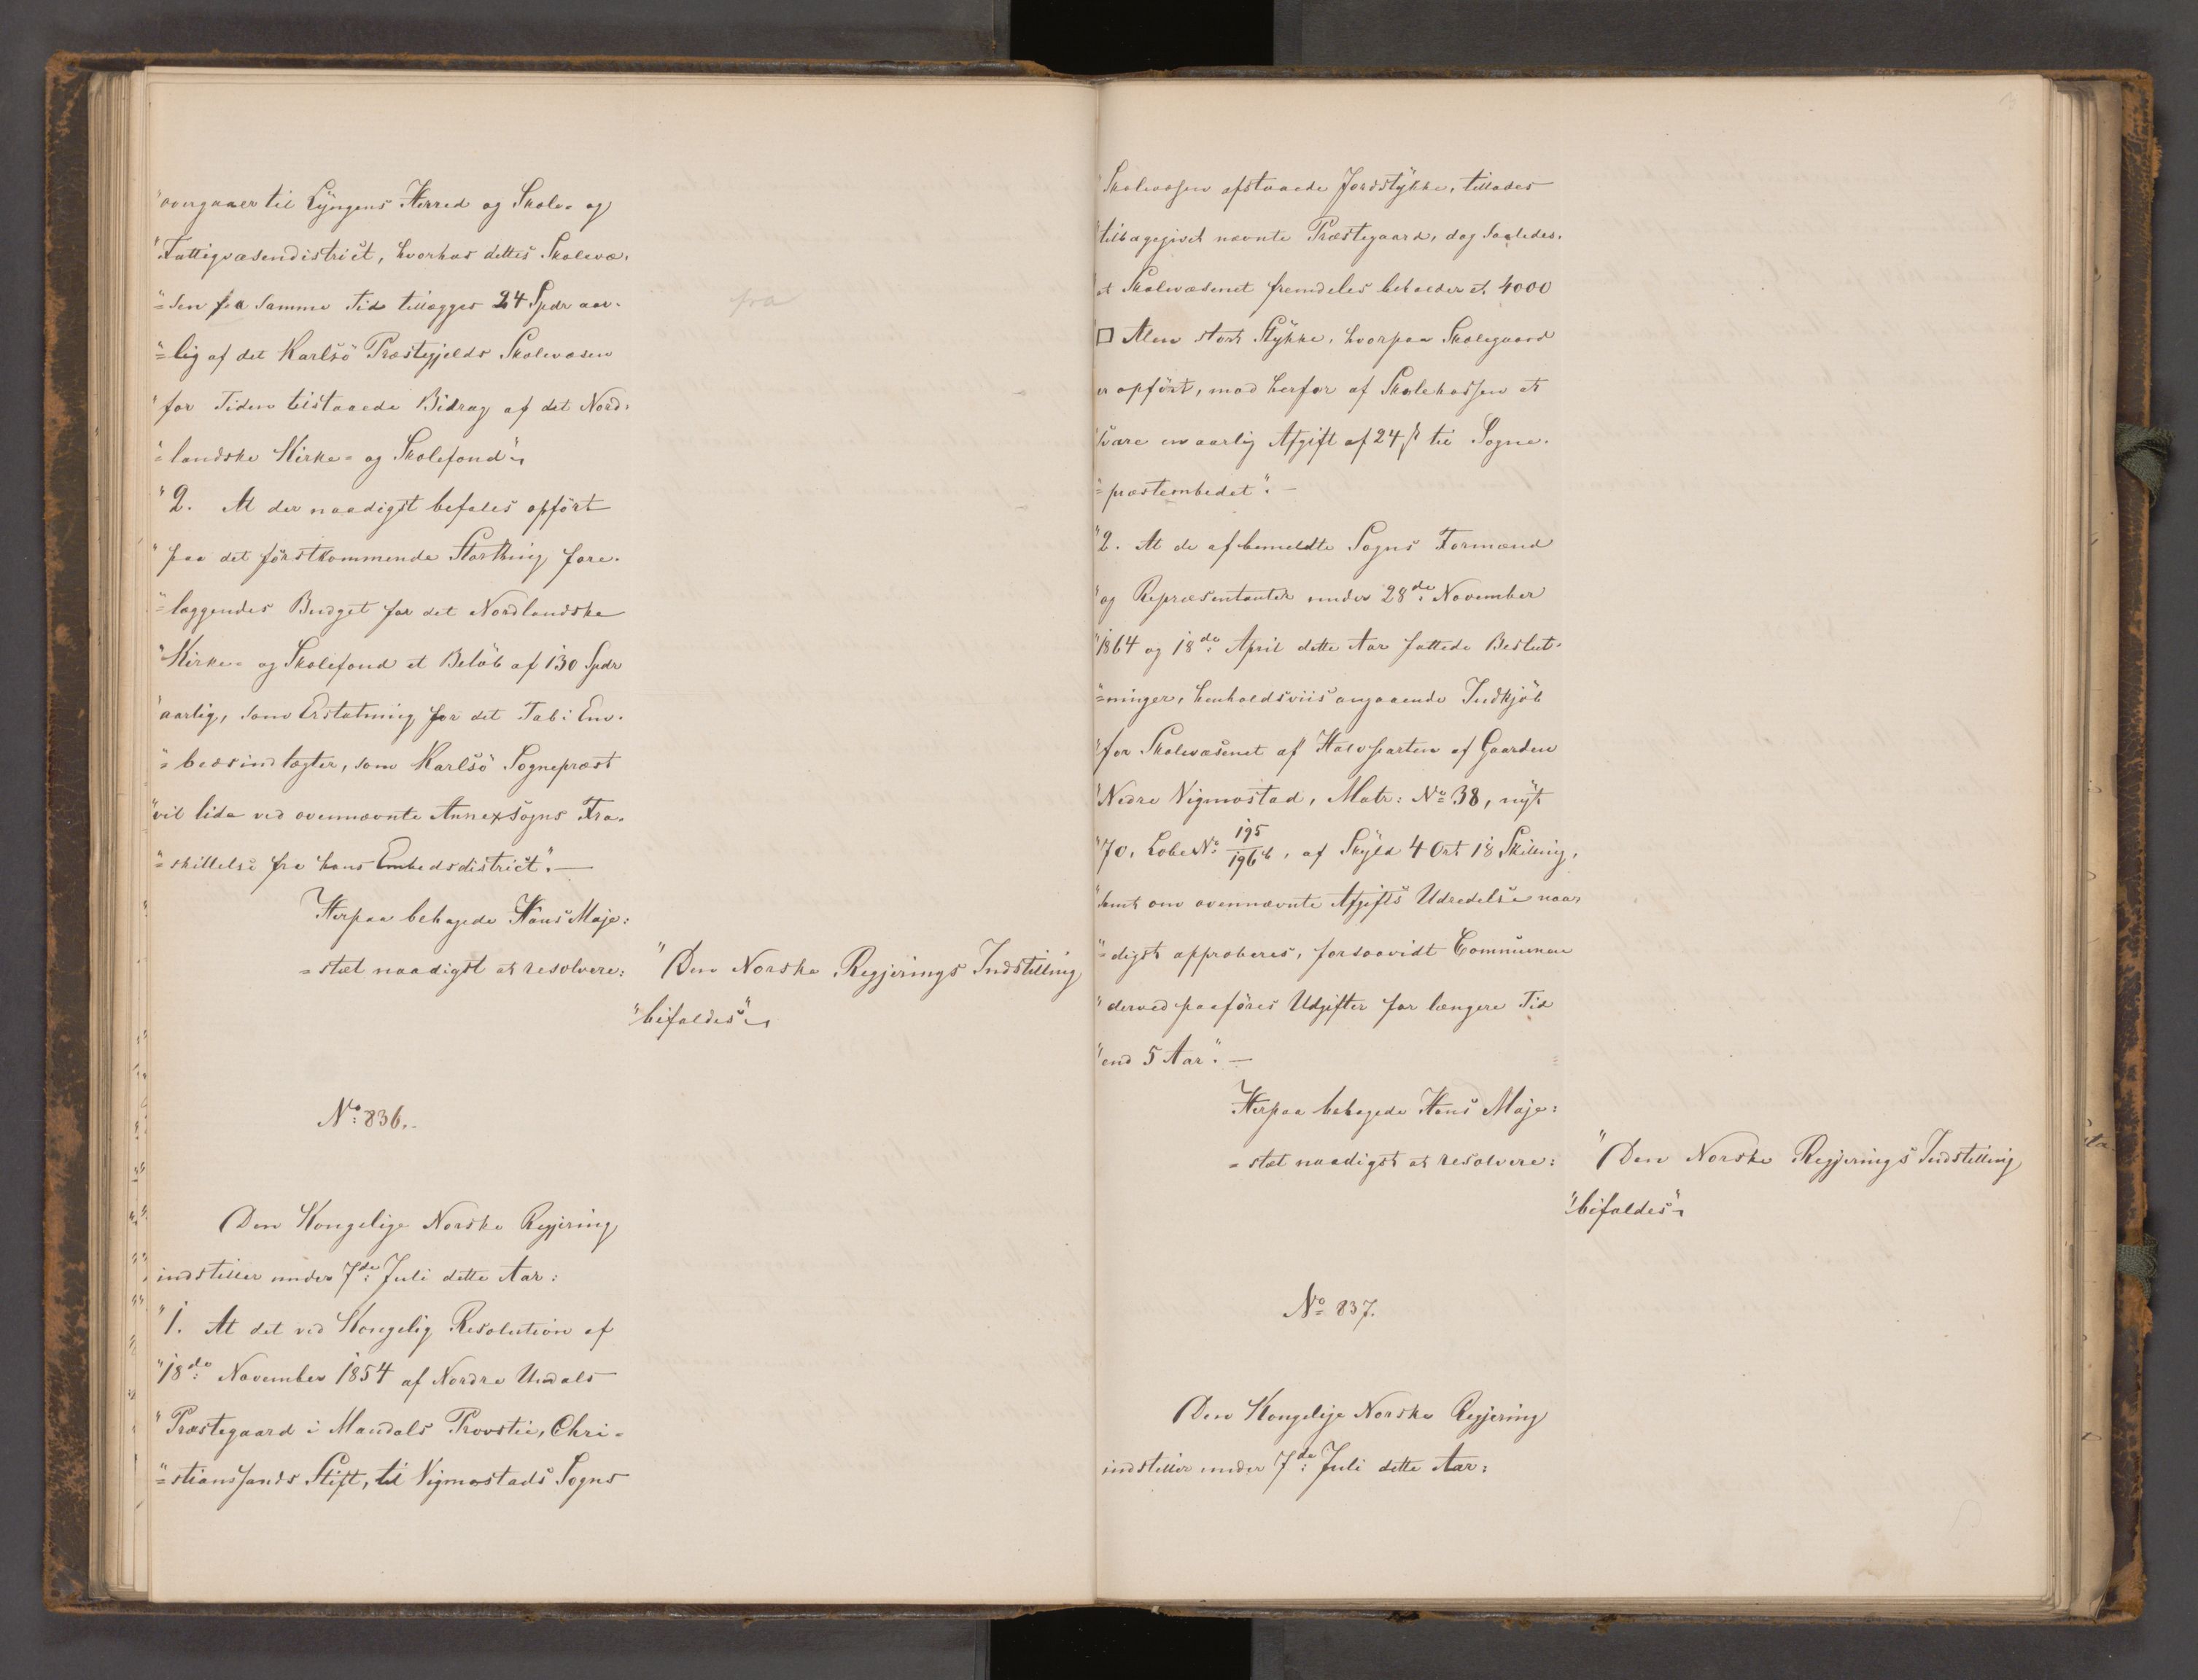 "overgaaer til Lyngens Herred og Skole- og
"Fattigvæsendistrict, hvorhos dettes Skolevæ-
"=sen fra samme Tid tillægges 24 Spdr aar-
"=lig af det Karlsö Præstegjelds Skolevæsen
"for Tiden tilstaaede Bidrag af det Nord-
"=landske Kirke- og Skolefond"
"2. At der naadigst befales opfört
"paa det förstkommende Storthing fore-
"=læggendes Budget for det Nordlandske
"Kirke- og Skolefond et Belöb af 130 Spdr
"aarlig, som Erstatning for det Tab i Em-
"=bedsindtægter, som Karlsö Sognepræst
"vil lide ved ovennævnte Annexsogns Fra-
"=skillelse fra hans Embedsdistrict". —
Herpaa behagede Hans Maje:
=stæt naadigst at resolvere:
"Den Norske Regjerings Indstilling
"bifaldes"
fra
No: 836.
Den Kongelige Norske Regjering
indstiller under 7de: Juli dette Aar:
"1. At det ved Kongelig Resolution af
"18de: November 1854 af Nordre Undals
"Præstegaard i Mandals Provstie, Chri-
"=stianssands Stift, til Vigmostads Sogns
"Skolevæsen afstaaede Jordstykke, tillades
"tilbagegivet nævnte Præstegaard, dog saaledes,
"at Skolevæsenet fremdeles beholder et 4000
□ Alen stort Stykke, hvorpaa Skolegaard
er opfört, mod herfor af Skolekassen at
"svare en aarlig Afgift af 24 ß til Sogne-
"=præstembedet". —
"2. At de af bemeldte Sogns Formænd
"og Repræsentanter under 28de: November
"1864 og 18de: April dette Aar fattede Beslut-
"=ninger, henholdsviis angaaende Indkjöb
"for Skolevæsenet af Halvparten af Gaarden
"Nedre Vigmostad, Matr: No 38, nyt
"70, Löbe No: 195/196b, af Skyld 4 Ort 18 Skilling,
"samt om ovennævnte Afgifts Udredelse naa-
"=digst approberes, forsaavidt Communen
"derved paaföres Udgifter for længere Tid
"end 5 Aar". —
Herpaa behagede Hans Maje:
=stæt naadigst at resolvere:
"Den Norske Regjerings Indstilling
"bifaldes"
No 837.
Den Kongelige Norske Regjering
indstiller under 7de: Juli dette Aar: